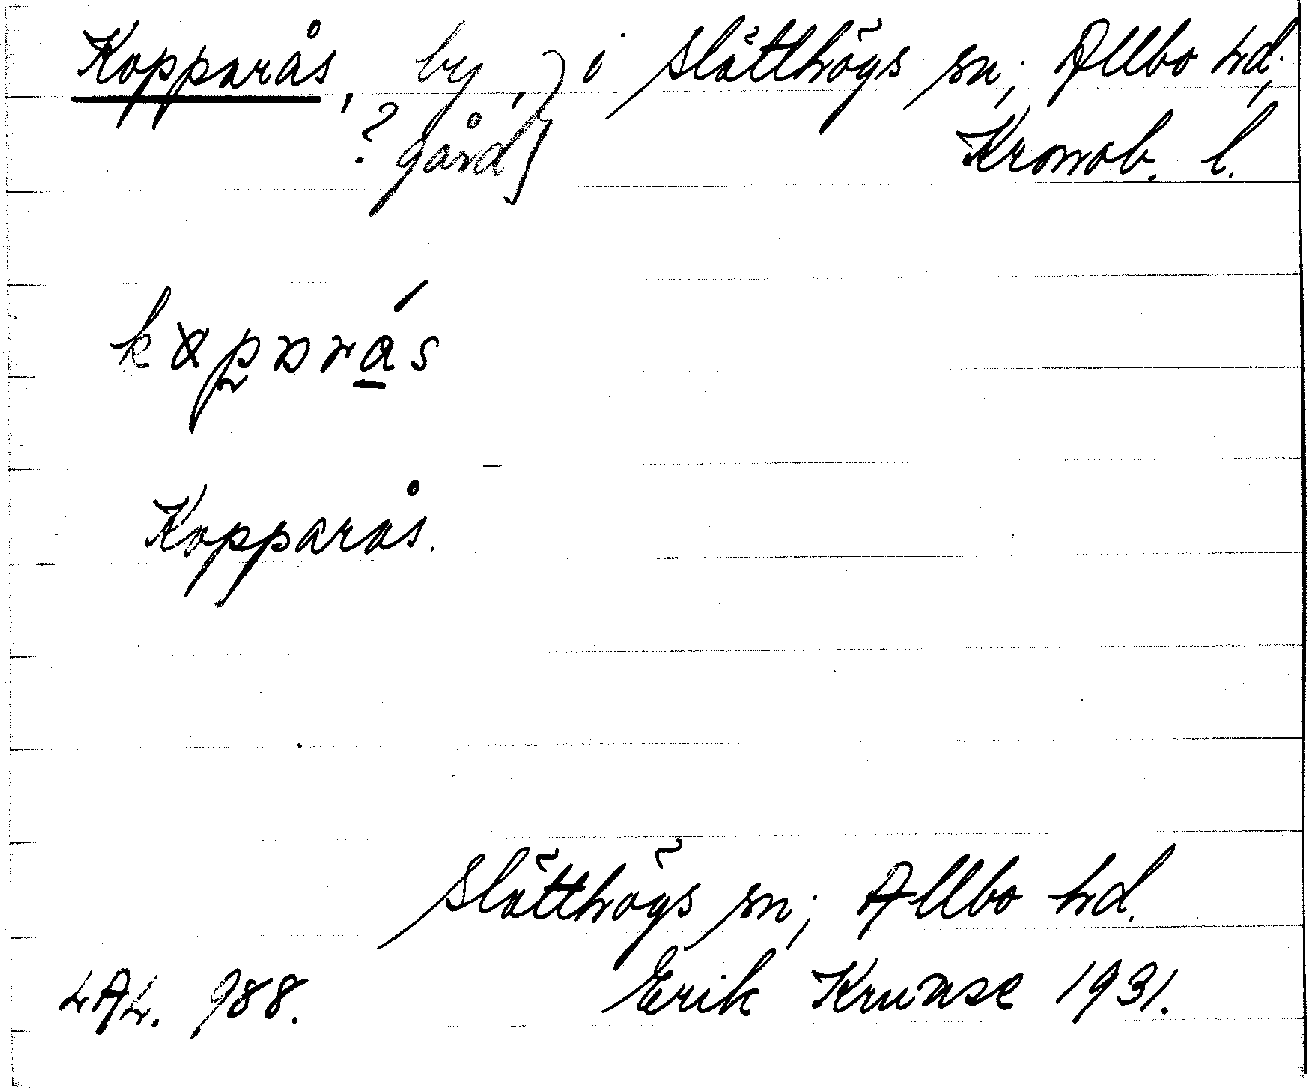 Kopparås, by, } i Slätthögs sn; Allbo hd;
? gård } Kronob. l.
Kopparås.
Slätthögs sn; Allbo hd.
988. Erik Krunse 1931.